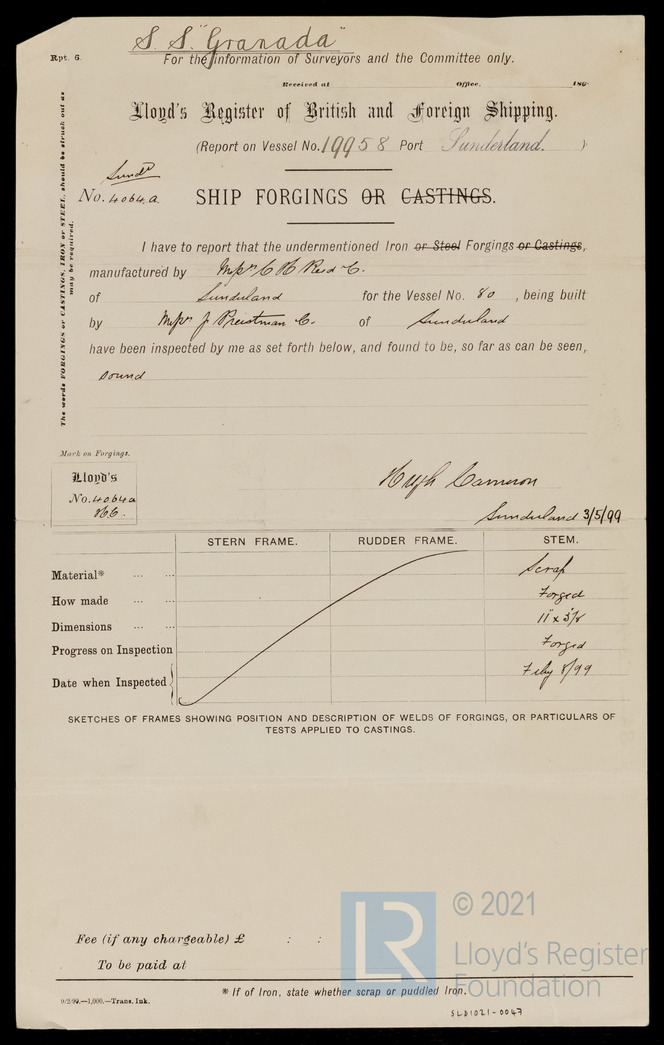 S. S. "Granada"
Rpt. 6.
For the information of Surveyors and the Committee only.
Received at Office, 18
Lloyd's Register of British and Foreign Shipping.
(Report on Vessel No. 19958 Port Sunderland. )
Sund^d
No. 4064.a SHIP FORGINGS OR CASTINGS.
The words FORGINGS or CASTINGS, IRON or STEEL, should be struck out as
may be required.
I have to report that the undermentioned Iron or Steel Forgings or Castings,
manufactured by Mess^rs C H Reed & C^o.
of Sunderland for the Vessel No. 80 , being built
by Mess^rs J Priestman & C^o. of Sunderland
have been inspected by me as set forth below, and found to be, so far as can be seen,
sound
Mark on Forgings.
Lloyd's
No. 4064a
H.C.
Hugh Cameron
Sunderland 3/5/99
STERN FRAME. RUDDER FRAME. STEM.
Material* ... ... Scrap
How made ... ... Forged
Dimensions ... ... 11" x 3/8
Progress on Inspection Forged
Date when Inspected Feby 8/99
SKETCHES OF FRAMES SHOWING POSITION AND DESCRIPTION OF WELDS OF FORGINGS, OR PARTICULARS OF
TESTS APPLIED TO CASTINGS.
Fee (if any chargeable) £ : :
To be paid at
* If of Iron, state whether scrap or puddled Iron.
9/2/99.—1,000.—Trans. Ink.
SLD1021-0047
LR
© 2021
Lloyd's Register
Foundation